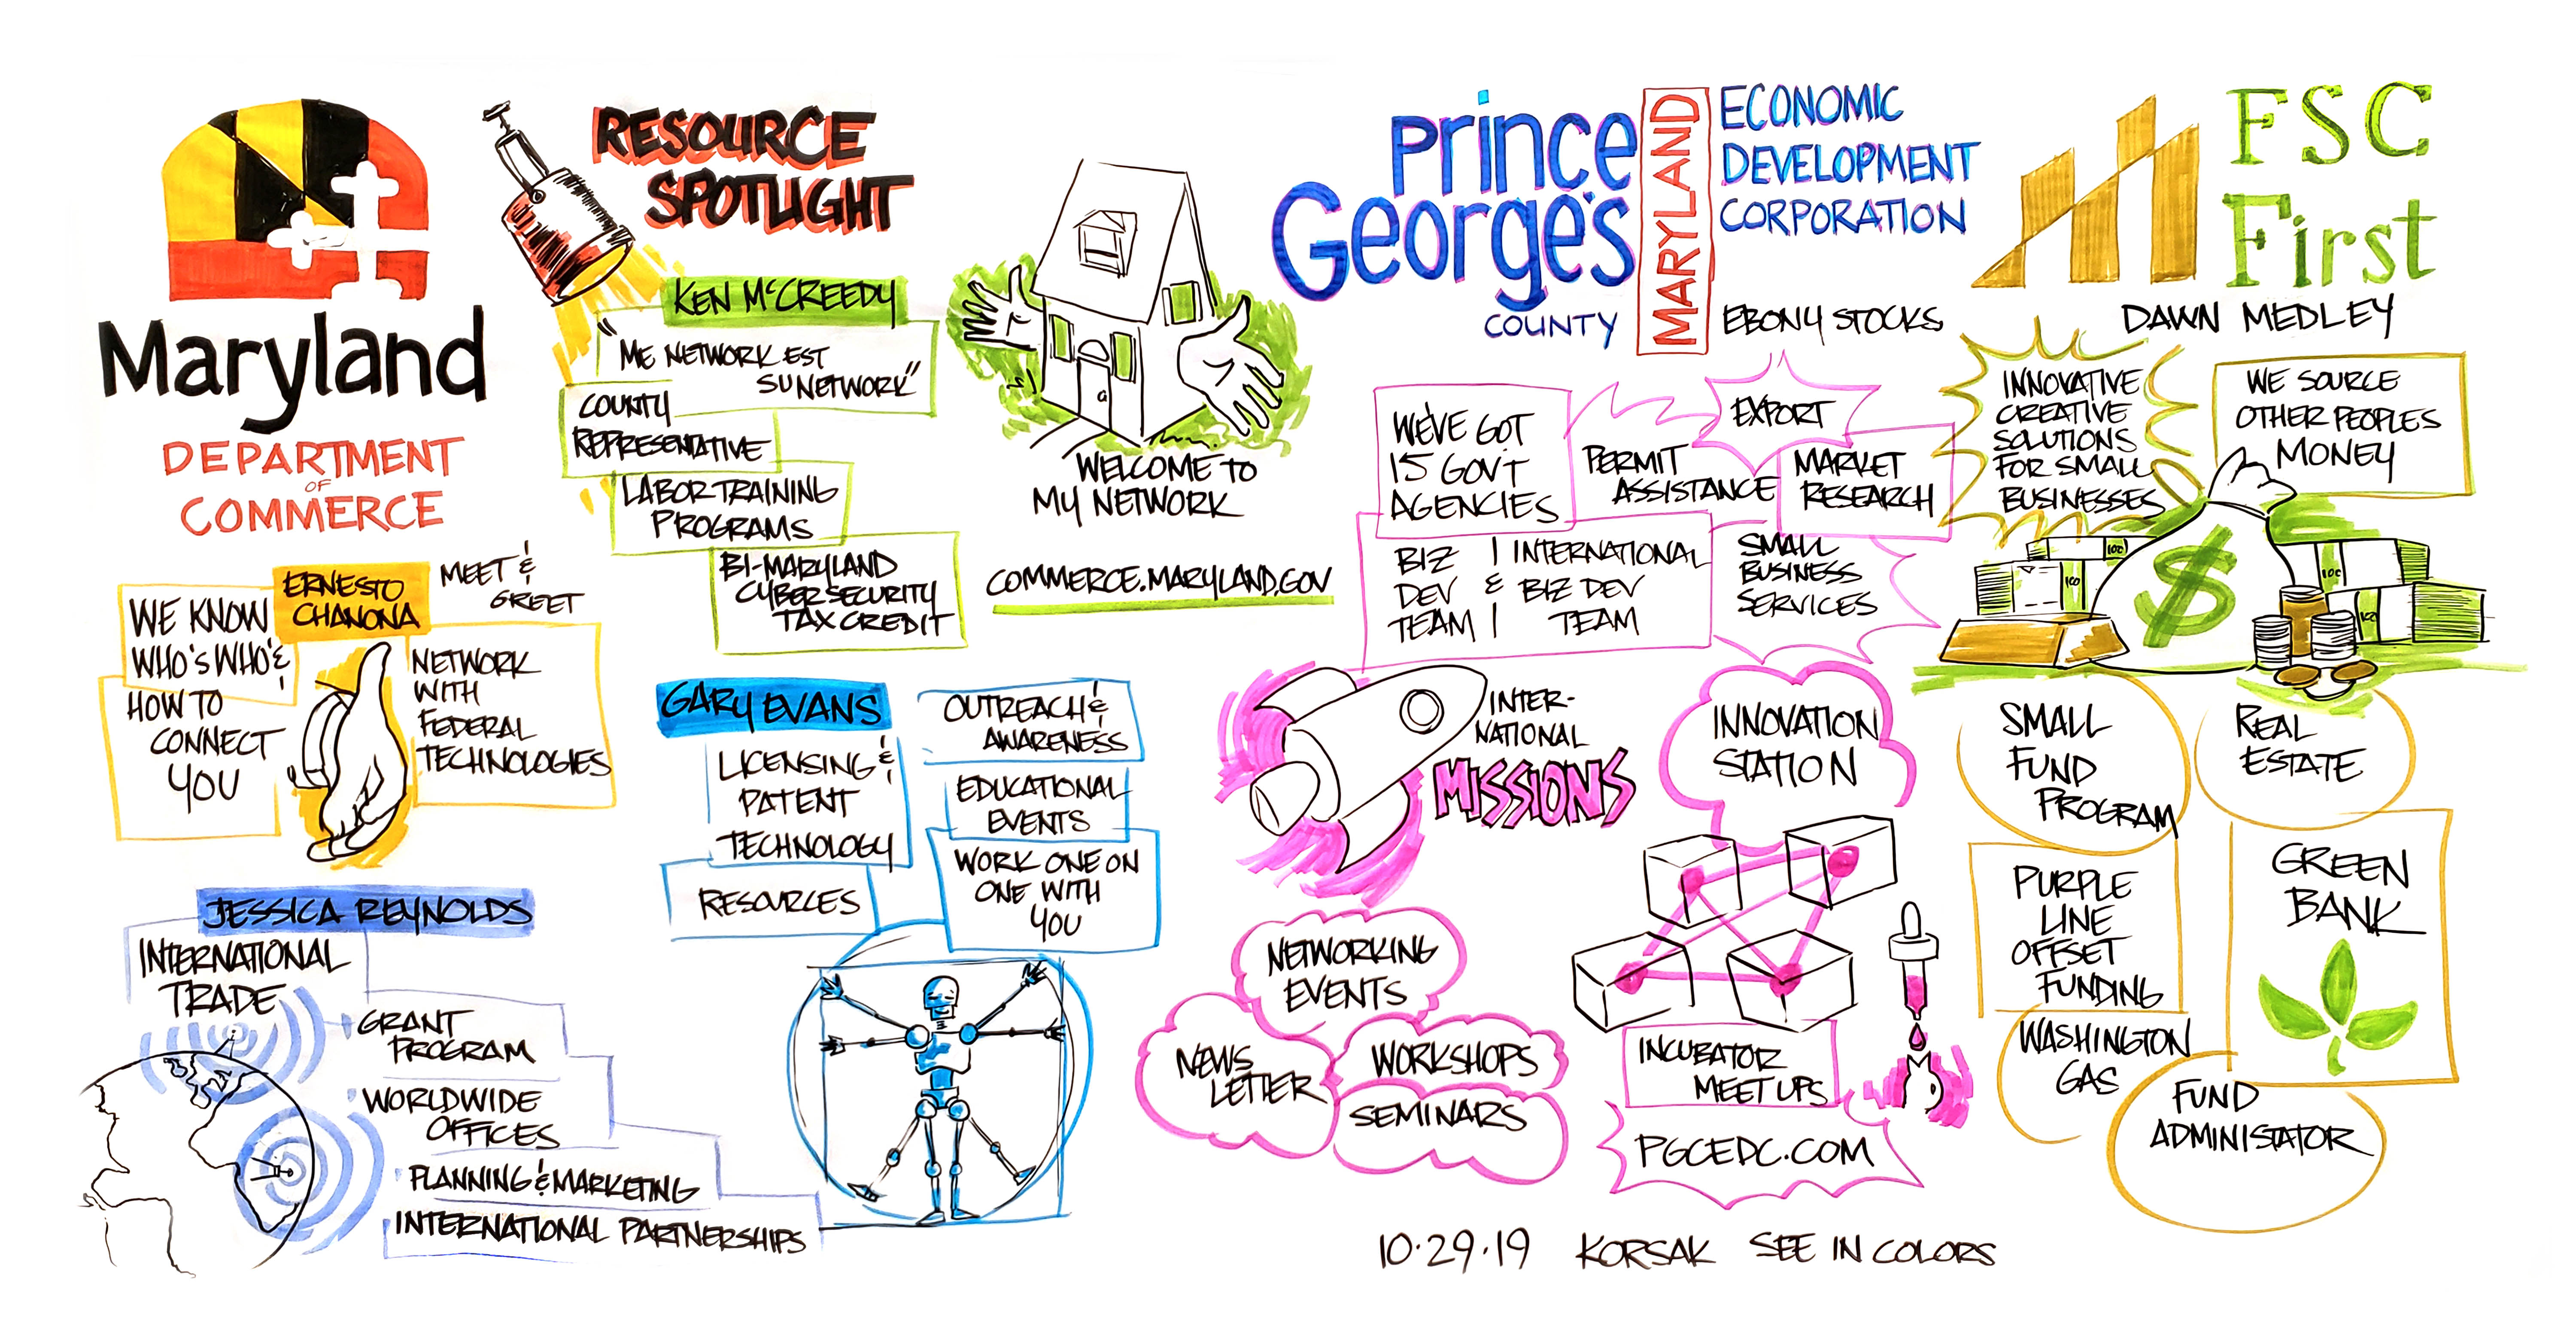 Maryland
DEPARTMENT
OF
COMMERCE
RESOURCE
SPOTLIGHT
KEN McCREEDY
"ME NETWORK EST
SU NETWORK"
COUNTY
REPRESENTATIVE
LABOR TRAINING
PROGRAMS
BI-MARYLAND
CYBERSECURITY
TAX CREDIT
WELCOME TO
MY NETWORK
COMMERCE.MARYLAND.GOV
ERNESTO
CHANONA
MEET &
GREET
WE KNOW
WHO'S WHO &
HOW TO
CONNECT
YOU
NETWORK
WITH
FEDERAL
TECHNOLOGIES
GARY EVANS
LICENSING &
PATENT
TECHNOLOGY
RESOURCES
OUTREACH &
AWARENESS
EDUCATIONAL
EVENTS
WORK ONE ON
ONE WITH
YOU
JESSICA REYNOLDS
INTERNATIONAL
TRADE
GRANT
PROGRAM
WORLDWIDE
OFFICES
PLANNING & MARKETING
INTERNATIONAL PARTNERSHIPS
Prince
George's
COUNTY
MARYLAND
ECONOMIC
DEVELOPMENT
CORPORATION
EBONY STOCKS
WE'VE GOT
15 GOV'T
AGENCIES
PERMIT
ASSISTANCE
EXPORT
MARKET
RESEARCH
BIZ
DEV
TEAM
&
INTERNATIONAL
BIZ DEV
TEAM
SMALL
BUSINESS
SERVICES
INTER-
NATIONAL
MISSIONS
INNOVATION
STATION
NETWORKING
EVENTS
NEWS
LETTER
WORKSHOPS
SEMINARS
INCUBATOR
MEET UPS
PGCEDC.COM
FSC
First
DAWN MEDLEY
INNOVATIVE
CREATIVE
SOLUTIONS
FOR SMALL
BUSINESSES
WE SOURCE
OTHER PEOPLES
MONEY
100
100
$
100
100
SMALL
FUND
PROGRAM
REAL
ESTATE
PURPLE
LINE
OFFSET
FUNDING
GREEN
BANK
WASHINGTON
GAS
FUND
ADMINISTATOR
10.29.19 KORSAK SEE IN COLORS